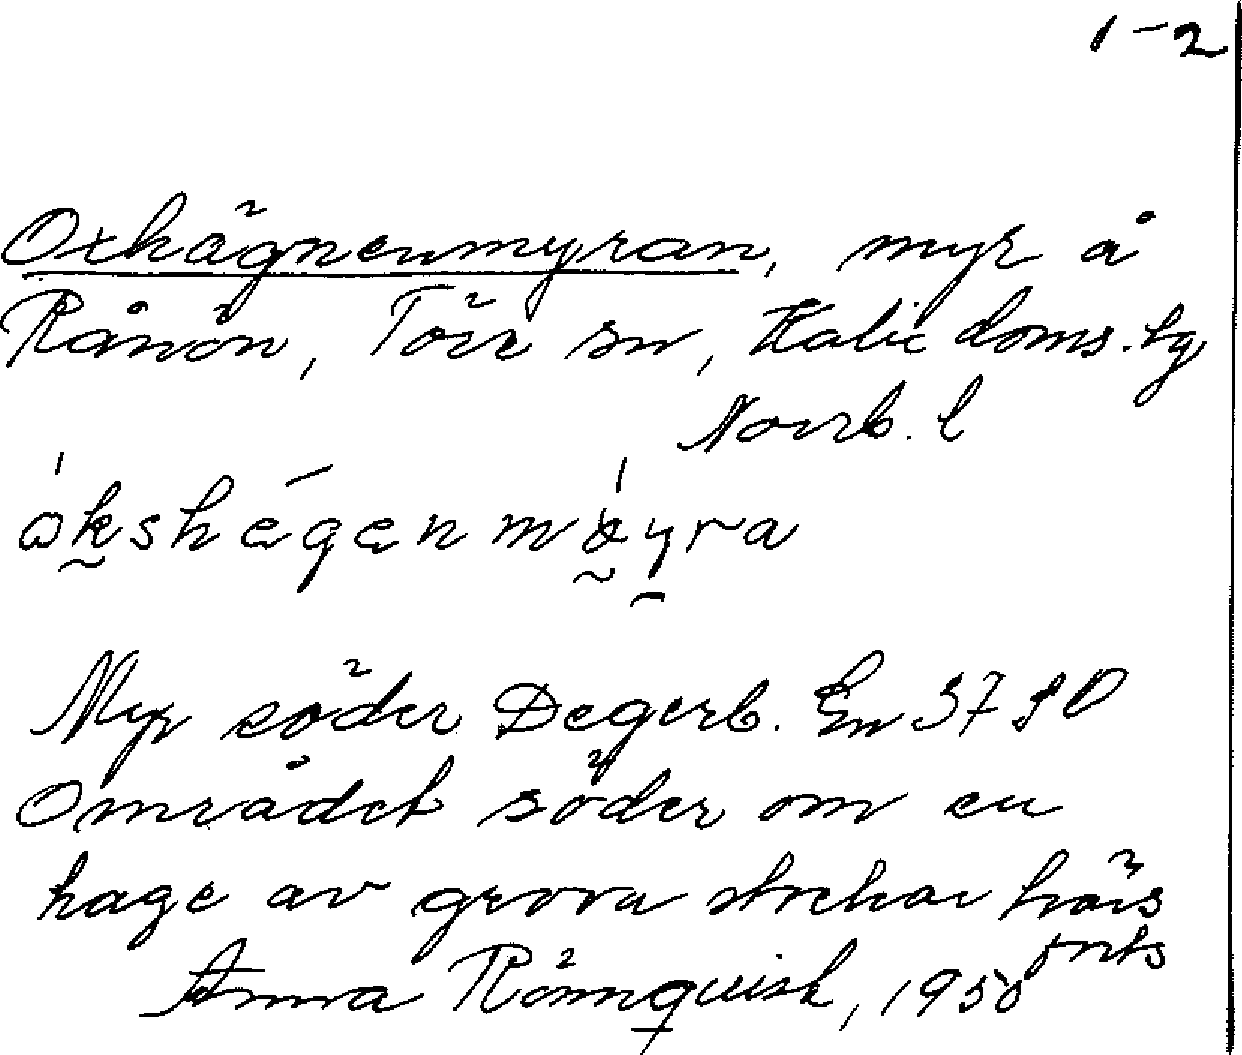 1-2
Oxhägnenmyran, myr å
Rånön, Töre sn, Kalix doms. tg
Norrb. l
åkshégen mýra
Myr söder Degerb. En 37 S O
Området söder om en
hage av grova stockar
forts
Anna Rönnquist, 1950